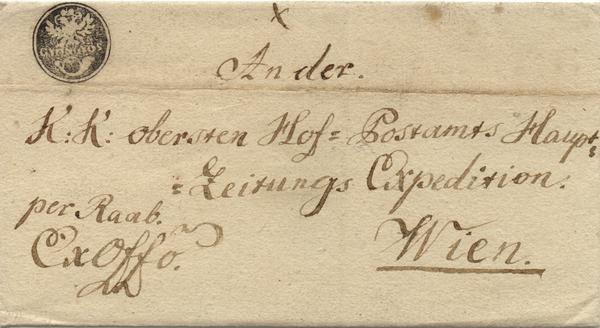 x
An der.
K: K: obersten Hof= Postamts Haupt=
=Zeitungs Expedition.
per Raab.
Ex Offo.
Wien.